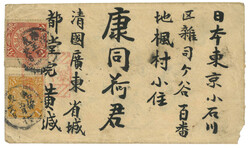 日本東京小石川
区雜司ケ谷百番
地楓村小住
康同荷君
清國廣東省城
都堂院黃諴